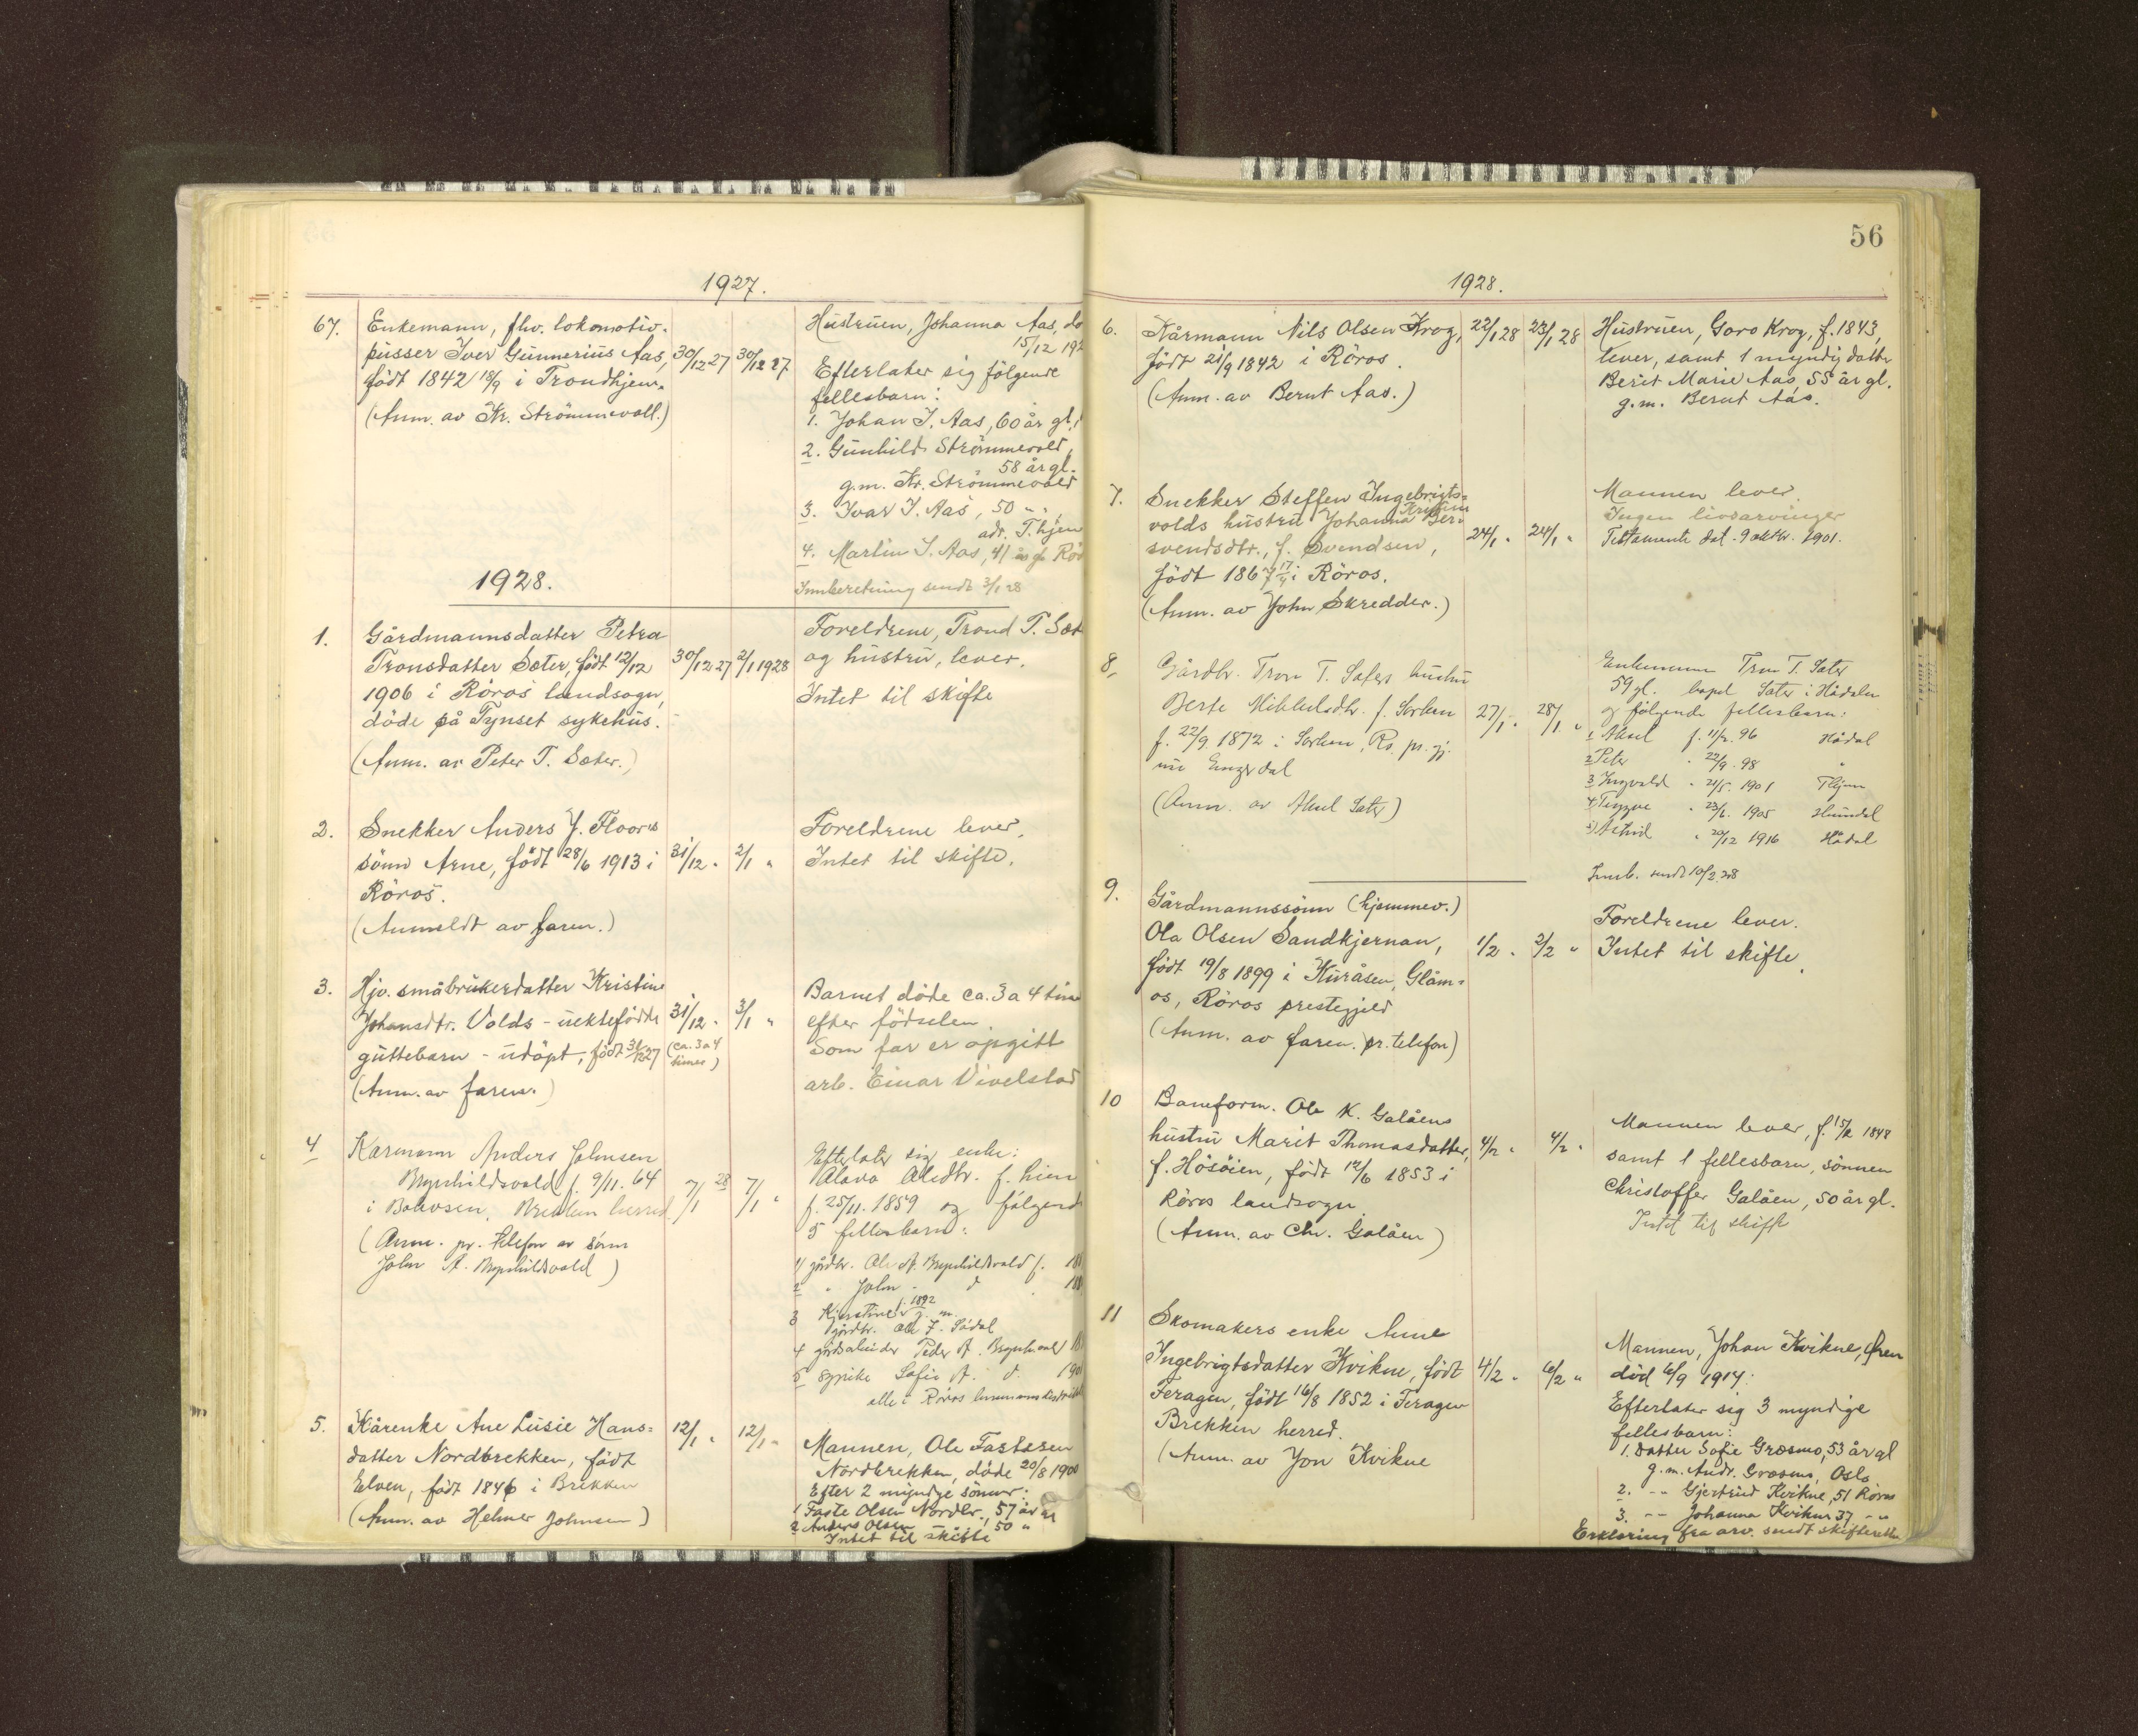 1927.
67. Enkemann, fhv. lokomotiv-
pusser Iver Gunnerius Aas, 30/12 27 30/12 27
født 1842 18/9 i Trondhjem.
(Anm. av Kr. Strömmevoll.)
Hustruen, Johanna Aas,
15/12
Efterlater sig følgende
fellesbarn:
1. Johan I. Aas, 60 år gl.
2. Gunhild Strömmevold,
58 år gl.
g.m. Kr. Strömmevold
3. Ivar I. Aas, 50 " "
adr. T.hjem
4. Martin I. Aas, 41 år gl
Innberetning sendt 3/1 28
1928.
1. Gårdmannsdatter Petra
Tronsdatter Sæter, født 12/12 30/12 27 2/1 1928
1906 i Röros landsogn,
döde på Tynset sykehus.
(Anm. av Peter T. Sæter.)
Foreldrene, Trond T.
og hustru, lever.
Intet til skifte
2. Snekker Anders J. Floors
sönn Arne, født 28/6 1913 i 31/12 " 2/1 "
Röros.
(Anmeldt av faren.)
Foreldrene lever.
Intet til skifte.
3. Hjv. småbrukerdatter Kristine
Johansdtr. Volds - uektefödte 31/12 " 3/1 "
guttebarn - udöpt, født 31/12 27 (ca. 3 a 4
timer)
(Anm. av faren.)
Barnet döde ca. 3 a 4
efter födselen.
Som far er opgitt
arb. Einar Vivelstad
4 Kårmann Anders Johnsen
Brynhildsvold f. 9/11. 64
i herred. 7/1 28 7/1 "
(Anm. pr. telefon av sönn
John A. Brynhildsvold)
Efterlater sig enke:
f.
f. 25/11. 1859 og
5 fellesbarn:
1) gårdbr. Ole A. Brynhildsvold f.
2 " John - d
3 Kjerstine f. 1892 g. m.
gårdbr. Ole J.
4 gårdsarbeider Peder A.
5 Sofie A. d.
alle i Röros
5. Kårenke Ane Lusie Hans= 12/1 " 12/1 "
datter Nordbrekken, født
Elven, født 1846 i Brekken
(Anm. av Helmer Johnsen)
Mannen, Ole Fastesen
Nordbrekken, döde 20/8 1900
Efter 2 myndige sönner:
1 Faste Olsen Nordbr., 57 år
2 Anders Olsen 50 "
Intet til skifte
56
1928.
6. Kårmann Nils Olsen Krog, 22/1 28 23/1 28
født 21/9 1842 i Röros.
(Anm. av Bernt Aas.)
Hustruen, Goro Krog, f. 1843,
lever, samt 1 myndig datter
Berit Marie Aas, 55 år gl.
g.m. Bernt Aas.
7. Snekker Steffen Ingebrigts=
volds hustru Johanna
svendsdtr., f. Svendsen, 24/1 " 24/1 "
født 1867 i Röros.
(Anm. av John Skredder.)
Mannen lever.
Ingen livsarvinger
Testamente dat. 9 oktbr. 1901.
8 Gårdbr. Tron T. Sæters hustru
Berte Mikkelsdtr. f. Sorken 27/1 " 28/1 "
f. 22/9 1872 i Sorken, Rö. pr. gj.
nu Engerdal
(Anm. av Aksel Sæter)
Enkemann Tron T. Sæter
59 gl. bopel Sæter i Hådalen
og følgende fellesbarn:
1 Aksel f. 11/2. 96 Hådal
2 Peter " 22/9. 98 "
3 Ingvald " 21/5. 1901 Thjem
4 Trygve " 23/6. 1905
5) Astrid " 20/12 1916 Hådal
Innb. sendt 10/2 28
9. Gårdmannssönn (hjemmev.)
Ola Olsen Sandkjernan, 1/2 " 2/2 "
født 19/8 1899 i Kuråsen, Glåm=
os, Röros prestegjeld
(Anm. av faren. pr. telefon)
Foreldrene lever.
Intet til skifte.
10 Baneform. Ole K. Galåens
hustru Marit Thomasdatter, 4/2 " 4/2 "
f. Hösöien, født 12/6 1853 i
Röros landsogn
(Anm. av Chr. Galåen)
Mannen lever, f. 15/2 1848
samt 1 fellesbarn, sönnen
Christoffer Galåen, 50 år gl.
Intet til skifte
11 Skomakers enke Anne
Ingebrigtsdatter Kvikne, født 4/2 " 6/2 "
Feragen, født 16/8 1852 i Feragen
Brekken herred.
(Anm. av Jon Kvikne
Mannen, Johan Kvikne,
död 6/9 1914:
Efterlater sig 3 myndige
fellesbarn:
1. datter Sofie Græsmo, 53 år gl
g.m. Andr. Græsmo, Oslo.
2. -"- Gjertrud Kvikne, 51 Röros
3. -"- Johanna Kvikne 37 -"-
Erklæring fra arv. sendt skifteretten